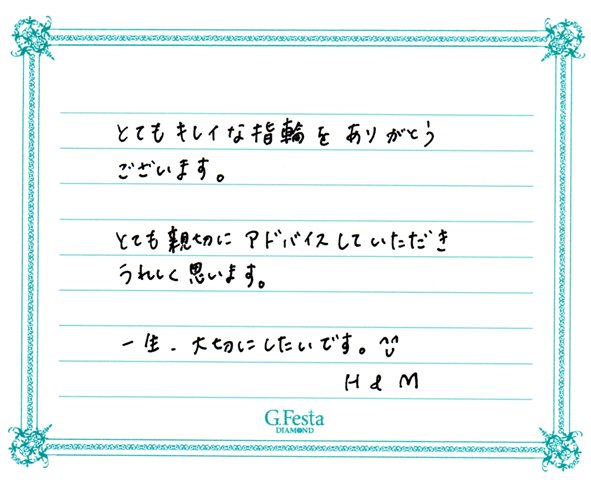 とてもキレイな指輪を ありがとう
ございます。
とても親切に アドバイスしていただき
うれしく思います。
一生、大切にしたいです。^^
H & M
G.Festa
DIAMOND